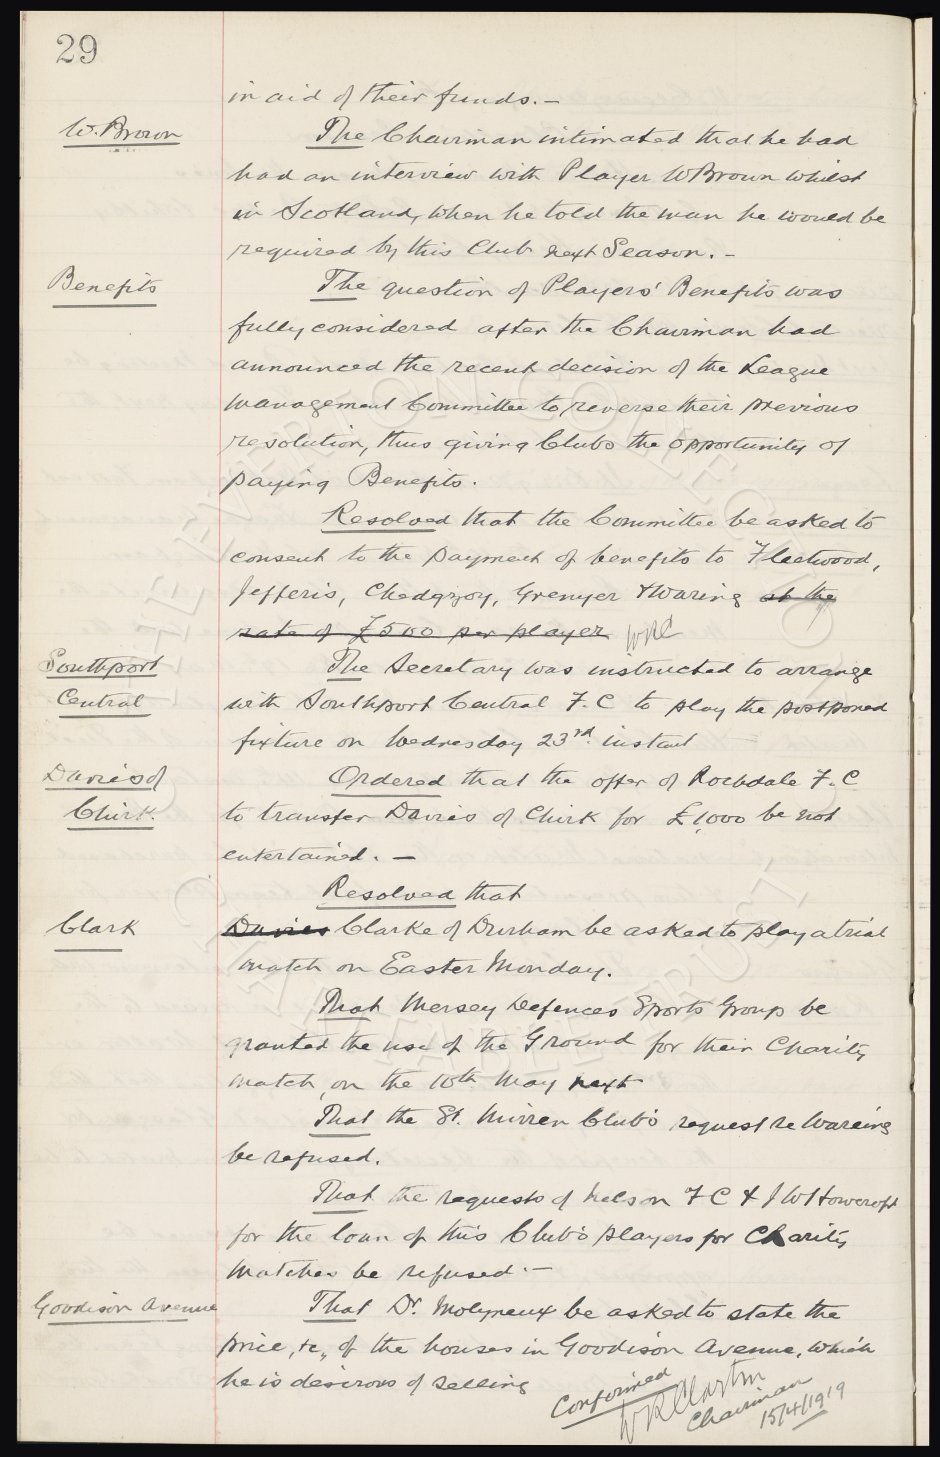 29
in aid of their funds. —
W. Brown
The Chairman intimated that he had
had an interview with Player W Brown whilst
in Scotland, when he told the man he would be
required by this Club next Season. –
Benefits
The question of Players' Benefits was
fully considered after the Chairman had
announced the recent decision of the League
Management Committee to reverse their previous
resolution, thus giving Clubs the opportunity of
paying Benefits.
Resolved that the Committee be asked to
consent to the payment of benefits to Fleetwood,
Jefferis, Chedgzoy, Grenyer & Waring at the
rate of £500 per player WRC
Southport
Central
The Secretary was instructed to arrange
with Southport Central F. C to play the postponed
fixture on Wednesday 23rd. instant
Davies of
Chirk.
Ordered that the offer of Rochdale F. C
to transfer Davies of Chirk for £1,000 be not
entertained. —
Resolved that
Clark
Davies Clarke of Durham be asked to play a trial
match on Easter Monday.
That Mersey Defences Sports Group be
granted the use of the Ground for their Charity
match, on the 10th May next
That the St. Mirren Club's request re Wareing
be refused.
That the requests of Nelson F C & J W Howcroft
for the loan of this Club's players for Charity
Matches be refused. —
Goodison Avenue
That Dr. Molyneux be asked to state the
price, &c, of the houses in Goodison Avenue, which
he is desirous of selling
Confirmed
W R Clayton
Chairman
15/4/1919
EVERTON COLLECTION
CHARITABLE TRUST